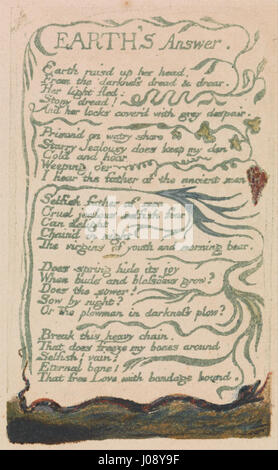 EARTH'S Answer.
Earth rais'd up her head.
From the darkness dread & drear.
Her light fled:
Stony dread!
And her locks cover'd with grey despair.
Prison'd on watry shore
Starry Jealousy does keep my den
Cold and hoar
Weeping o'er
I hear the father of the ancient men
Selfish father of men
Cruel jealous selfish fear
Can delight
Chain'd in night
The virgins of youth and morning bear.
Does spring hide its joy
When buds and blossoms grow?
Does the sower?
Sow by night?
Or the plowman in darkness plow?
Break this heavy chain.
That does freeze my bones around
Selfish! vain!
Eternal bane!
That free Love with bondage bound.
alamy stock photo
J089YF